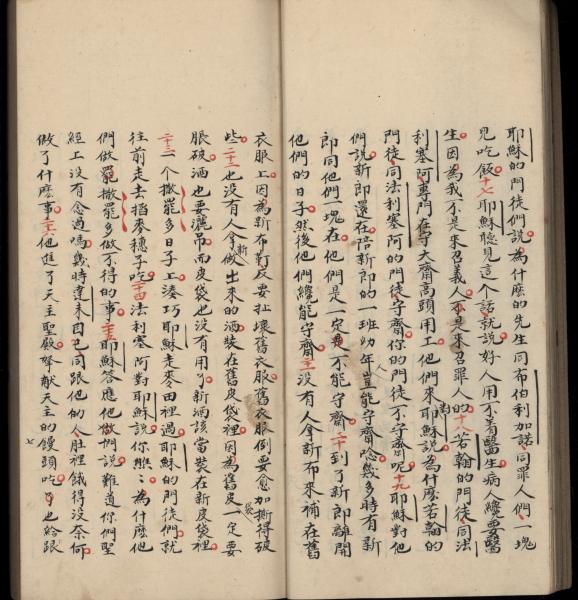 耶穌的門徒們說為什麼的先生同布伯利加諾同罪人們一塊
兒吃飯十七耶穌聽見這个話就說好人用不着醫生病人纔要醫
生因為我不是來召義人不是來召罪人的十八若翰的門徒同法
利塞阿專門在守大齋高頭用工他們來對耶穌說為什麼若翰的
門徒同法利塞阿的門徒守齋你的門徒不守齋呢十九耶穌對他
們說新郎還在陪新郎的一班幼年人豈能守齋唸幾多時有新
郎同他們一塊在他們是一定不能守齋二十到了新郎離開
他們的日子然後他們纔能守齋二一沒有人拿新布來補在舊
衣服上因為新布要扯壞舊衣服舊衣服倒要愈加撕得破
些二二也沒有人拿新做出來的酒裝在舊皮袋裡因為舊皮袋一定要
脹破酒也要灑吊而皮袋也沒有用了新酒該當裝在新皮袋裡
二三一个撒罷多日子上湊巧耶穌走麥田裡過耶穌的門徒們就
往前走去掐麥穗子吃二四法利塞阿對耶穌說你瞧瞧為什麼他
們做罷撒罷多做不得的事二五耶穌答應他們說難道你們聖
經上沒有念過嗎幾時達未因己同跟他的人肚裡餓得沒奈何
做了什麽事二六他進了天主聖殿拏献天主的饅頭吃了也給跟